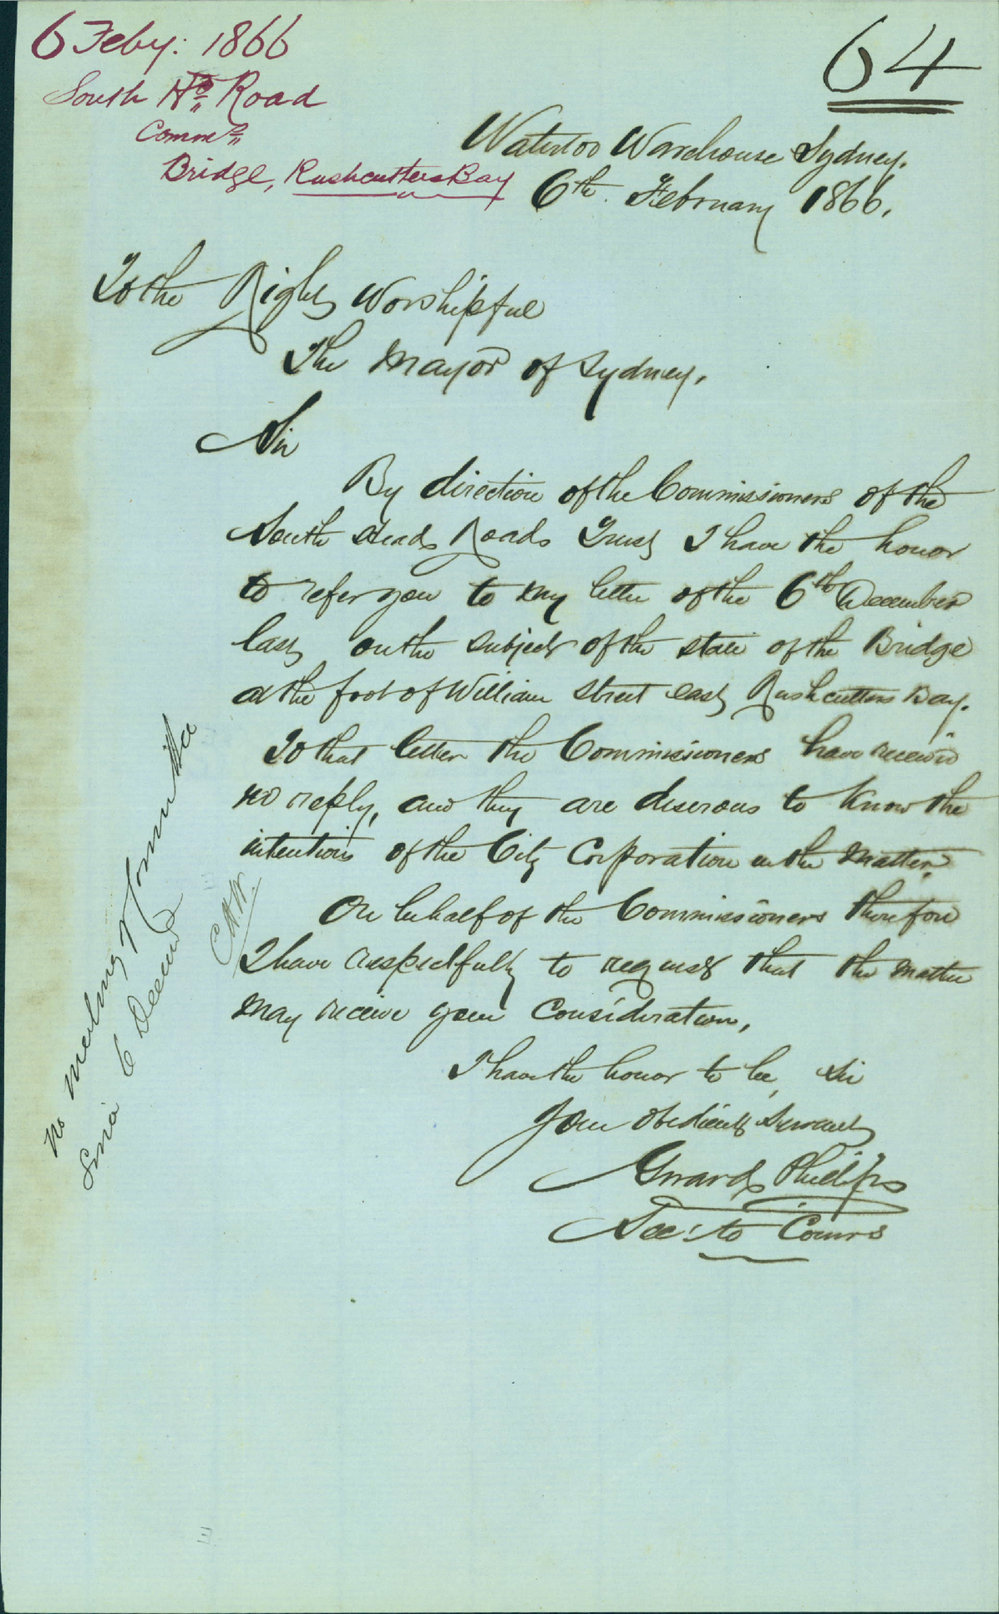 6 Feby: 1866
South Hd Road
Commrs
Bridge, Rushcutters Bay
64
Waterloo Warehouse Sydney.
6th February 1866.
To the Right Worshipful
The Mayor of Sydney.
Sir
By direction of the Commissioners of the
South Head Roads Trust I have the honor
to refer you to my letter of the 6th December
last on the subject of the state of the Bridge
at the foot of William Street East Rushcutters Bay.
To that letter the Commissioners have received
no reply, and they are diserous to know the
intentions of the City Corporation in the Matter.
On behalf of the Commissioners therefore
I have respectfully to request that the matter
may receive your Consideration,
I have the honor to be, Sir
Your obedient Servant
Gerrard Phillips
Sec: to Comrs
No meeting of Committee
Since 6 Decemr